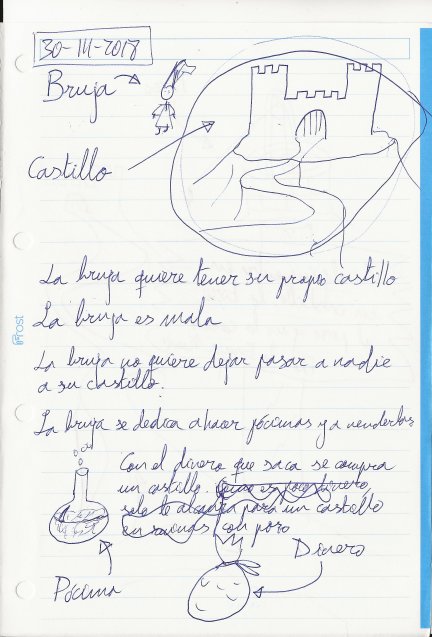 30-III-2018
Bruja
Castillo
La bruja quiere tener su propio castillo
La bruja es mala
La bruja no quiere dejar pasar a nadie
a su castillo.
La bruja se dedica a hacer pócimas y a venderlas
Con el dinero que saca se compra
un castillo. Como es poco dinero,
solo le alcanza para un castillo
en ruinas con pozo
Dinero
Pócima
Prost